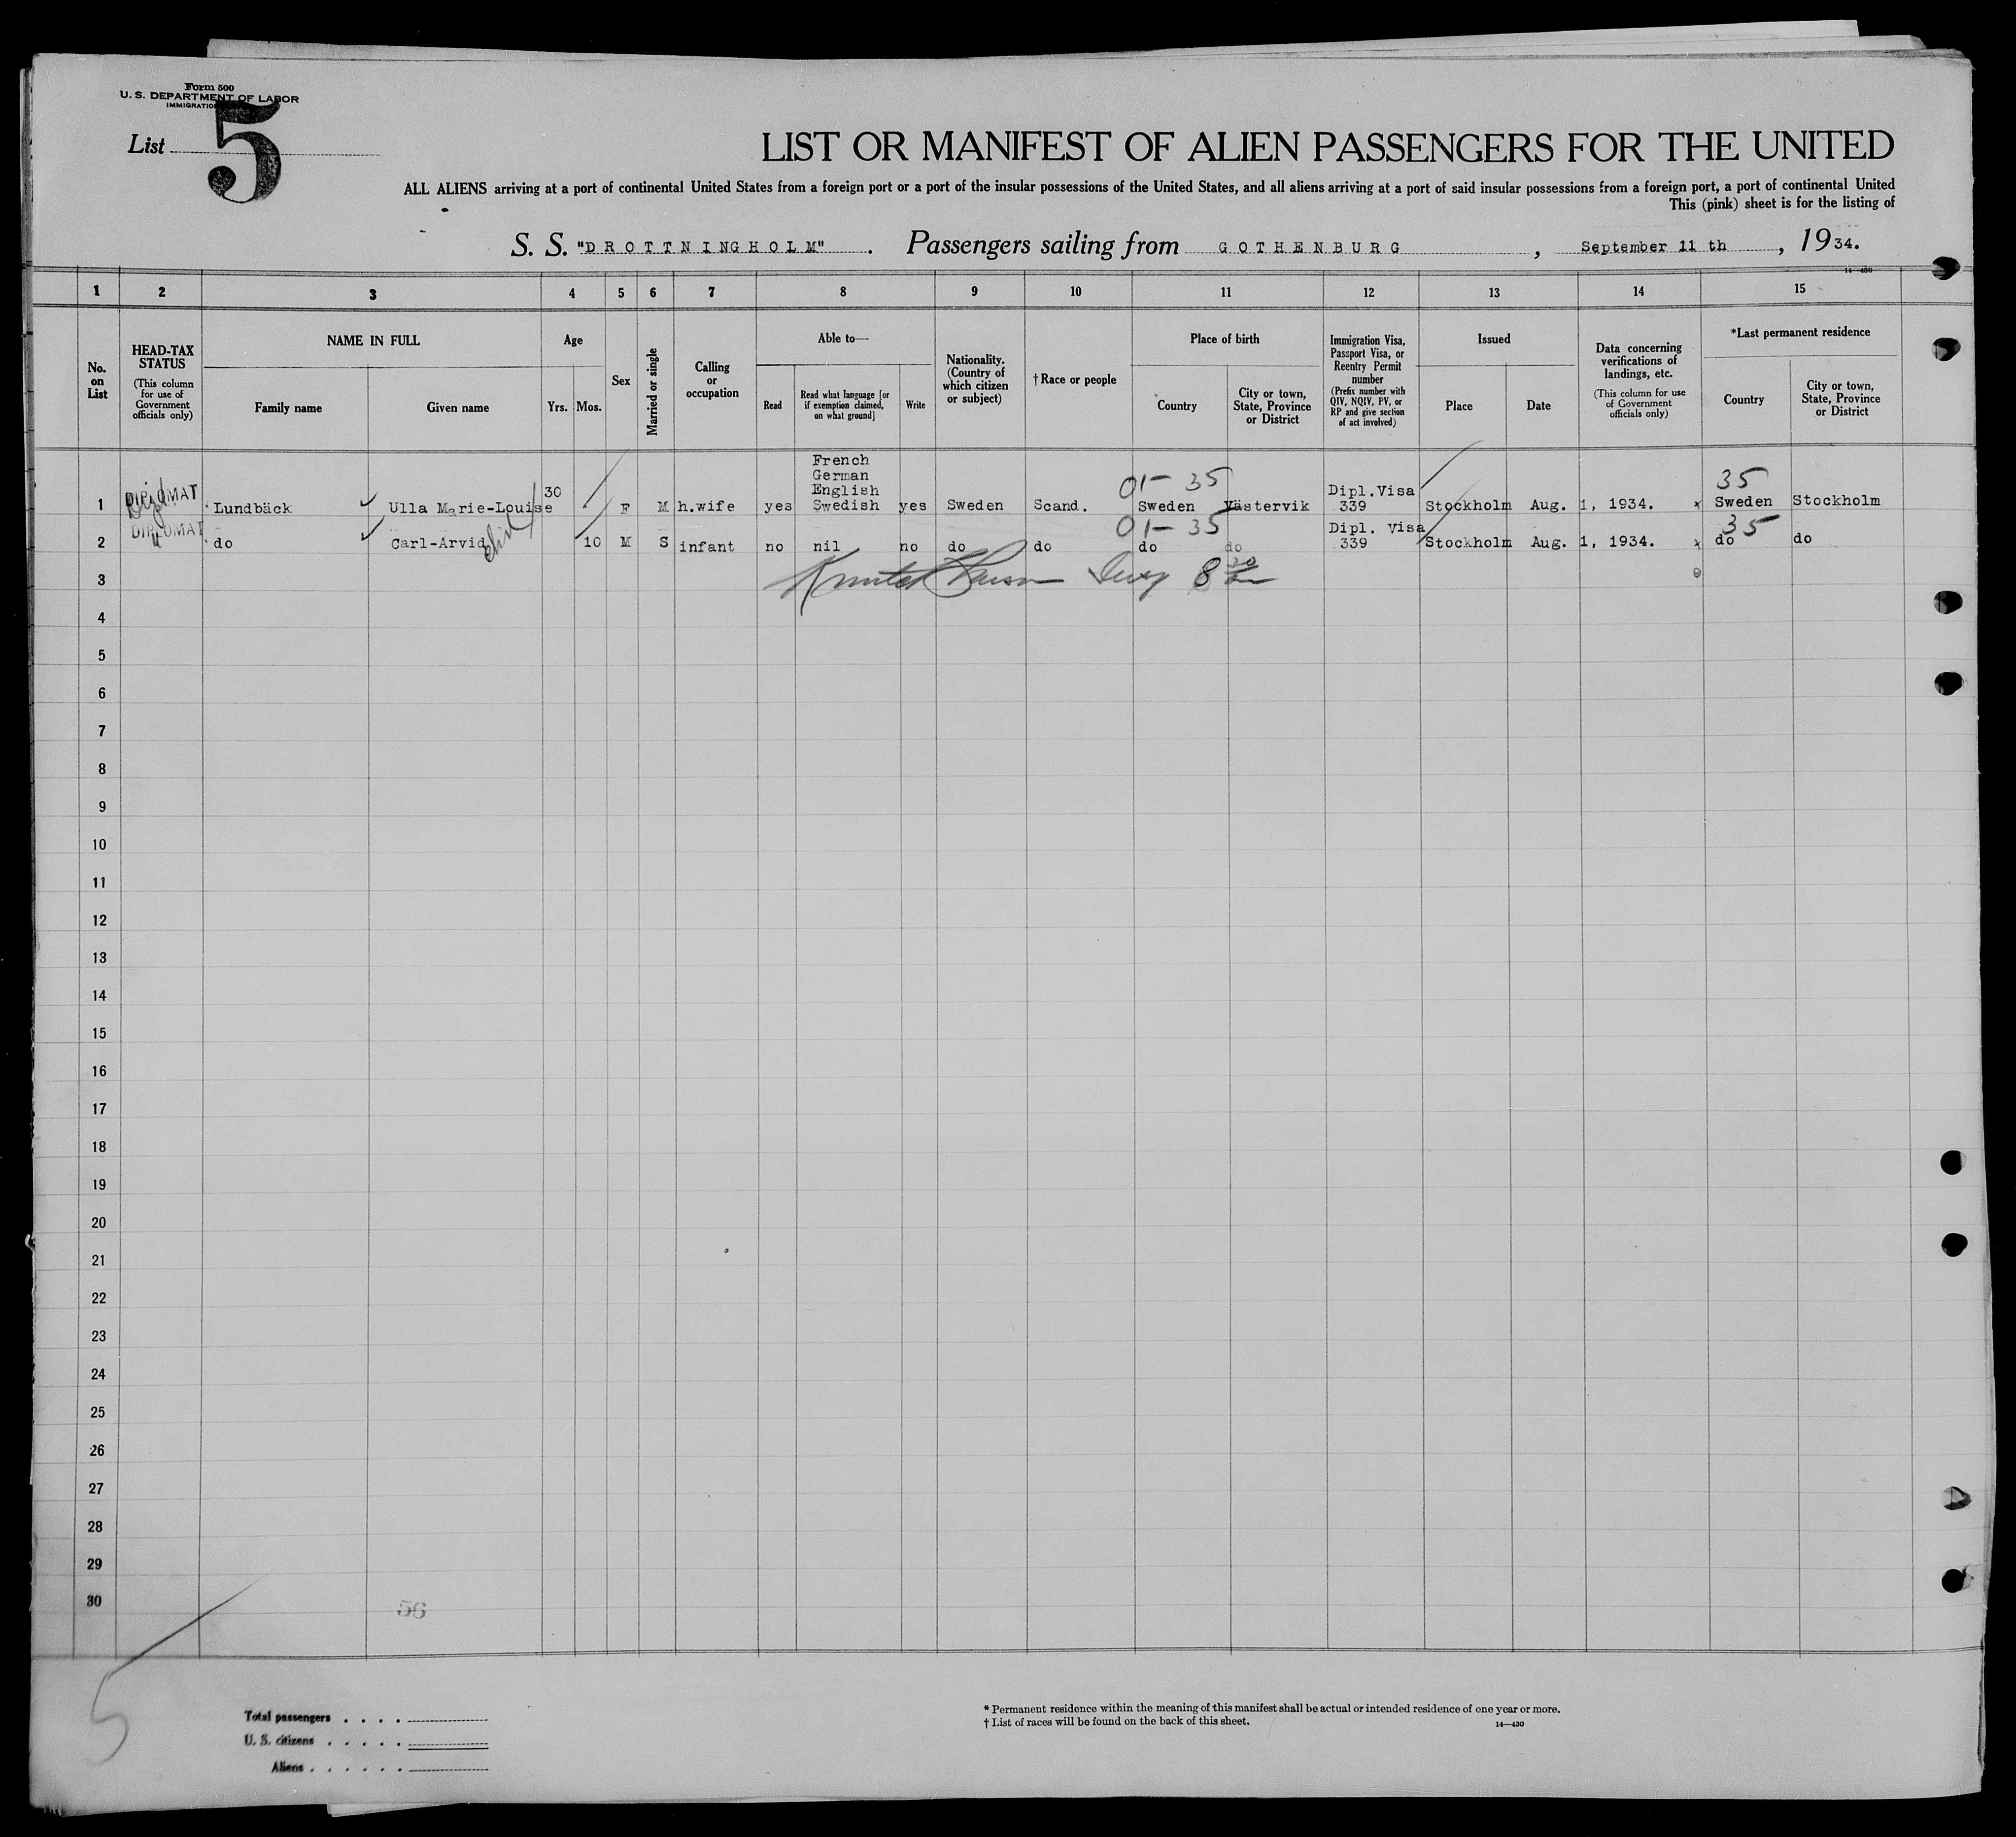 Form 500
U. S. DEPARTMENT OF LABOR
List 5
LIST OR MANIFEST OF ALIEN PASSENGERS FOR THE UNITED
ALL ALIENS arriving at a port of continental United States from a foreign port or a port of the insular possessions of the United States, and all aliens arriving at a port of said insular possessions from a foreign port, a port of continental United
This (pink) sheet is for the listing of
S. S. "DROTTNINGHOLM". Passengers sailing from GOTHENBURG, September 11 th, 1934.
14—430
1 2 3 4 5 6 7 8 9 10 11 12 13 14 15
No. on List
HEAD-TAX STATUS
(This column for use of Government officials only)
NAME IN FULL
Family name
Given name
Age
Yrs. Mos.
Sex
Married or single
Calling or occupation
Able to—
Read
Read what language [or if exemption claimed, on what ground]
Write
Nationality. (Country of which citizen or subject)
†Race or people
Place of birth
Country
City or town, State, Province or District
Immigration Visa, Passport Visa, or Reentry Permit number
(Prefix number with QIV, NQIV, PV, or RP and give section of act involved)
Issued
Place
Date
Data concerning verifications of landings, etc.
(This column for use of Government officials only)
*Last permanent residence
Country
City or town, State, Province or District
French
German
English
01-35
35
1 DIPLOMAT Lundbäck Ulla Marie-Louise 30 F M h.wife yes Swedish yes Sweden Scand. Sweden Västervik Dipl.Visa 339 Stockholm Aug. 1, 1934. x Sweden Stockholm
01-35
35
2 DIPLOMAT do Carl-Arvid 10 M S infant no nil no do do do do Dipl. Visa 339 Stockholm Aug. 1, 1934. x do do
3
4
5
6
7
8
9
10
11
12
13
14
15
16
17
18
19
20
21
22
23
24
25
26
27
28
29
30
56
5
Total passengers . . . .
U. S. citizens . . . . .
Aliens . . . . . .
* Permanent residence within the meaning of this manifest shall be actual or intended residence of one year or more.
† List of races will be found on the back of this sheet. 14—430